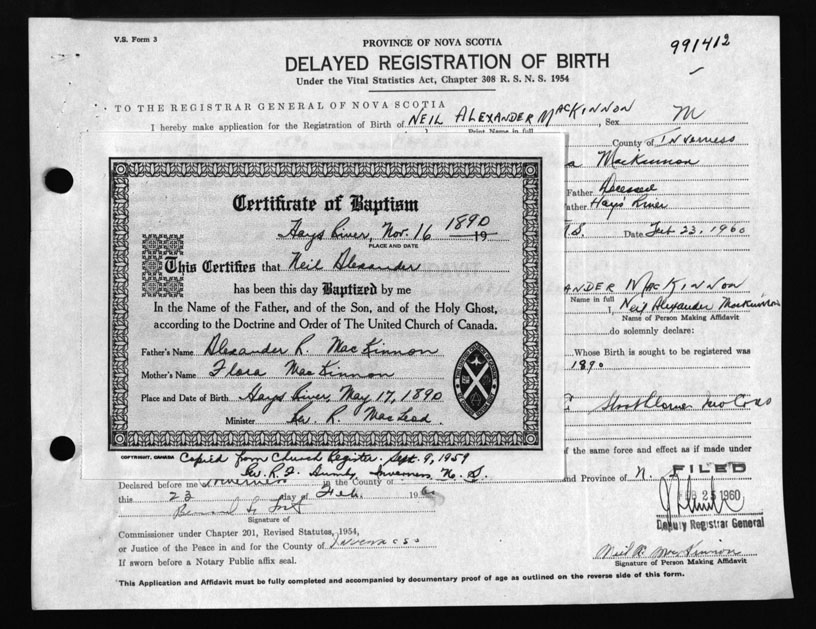 V.S. Form 3
PROVINCE OF NOVA SCOTIA
991412
DELAYED REGISTRATION OF BIRTH
Under the Vital Statistics Act, Chapter 308 R. S. N. S. 1954
TO THE REGISTRAR GENERAL OF NOVA SCOTIA
I hereby make application for the Registration of Birth of NEIL ALEXANDER MACKINNON, Sex M
Print Name in full
County of Inverness
a MacKinnon
Father Deceased
ather Hays River
N.S. Date Feb 23, 1960
Certificate of Baptism
Hays River, Nov. 16 1890 19
PLACE AND DATE
This Certifies that Neil Alexander
has been this day Baptized by me
In the Name of the Father, and of the Son, and of the Holy Ghost,
according to the Doctrine and Order of The United Church of Canada.
Father's Name Alexander R. MacKinnon
Mother's Name Flora MacKinnon
Place and Date of Birth Hays River, May 17, 1890
Minister Rev. R. MacLeod
COPYRIGHT, CANADA
Copied from Church Register. Sept. 9, 1959
Inverness, N. S.
ANDER MACKINNON
Name in full
I, Neil Alexander MacKinnon
Name of Person Making Affidavit
do solemnly declare:
Whose Birth is sought to be registered was
1890
f the same force and effect as if made under
Declared before me Inverness in the County of
nd Province of N. S.
this 23 day of Feb. 196
FILED
FEB 25 1960
Deputy Registrar General
Signature of
Commissioner under Chapter 201, Revised Statutes, 1954,
or Justice of the Peace in and for the County of Inverness
If sworn before a Notary Public affix seal.
Neil A. MacKinnon
Signature of Person Making Affidavit
*This Application and Affidavit must be fully completed and accompanied by documentary proof of age as outlined on the reverse side of this form.